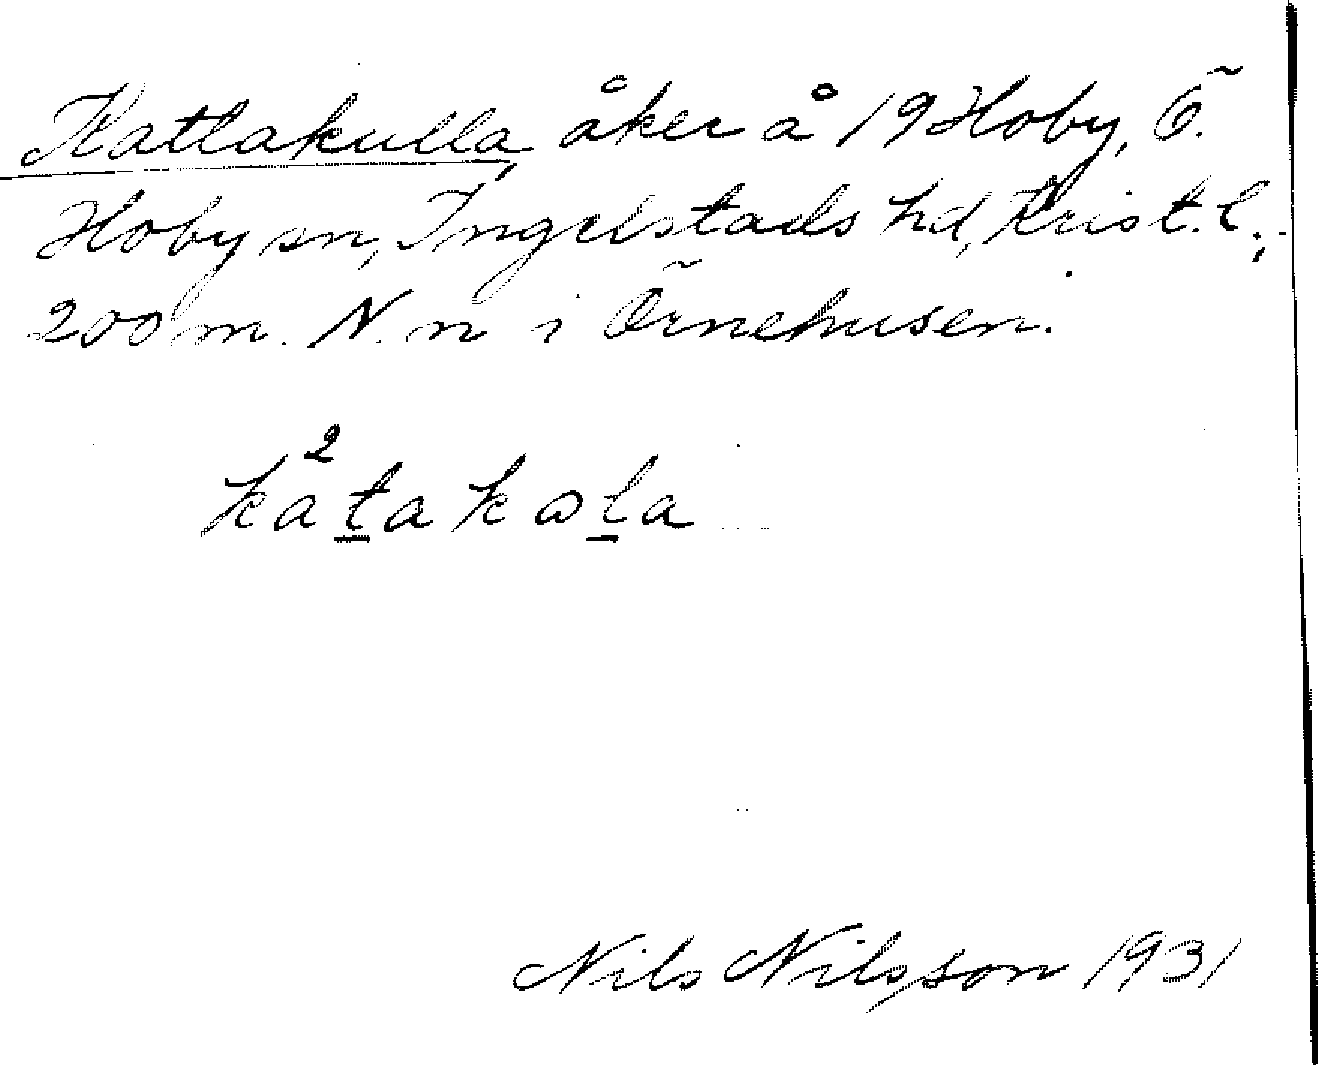 Kattakulla, åker å 19 Hoby, Ö.
Hoby sn, Ingelstads hd, Krist. l.;
200 m. N. n i Örnehusen.
kа²t̲akωl̲a
Nils Nilsson 1931